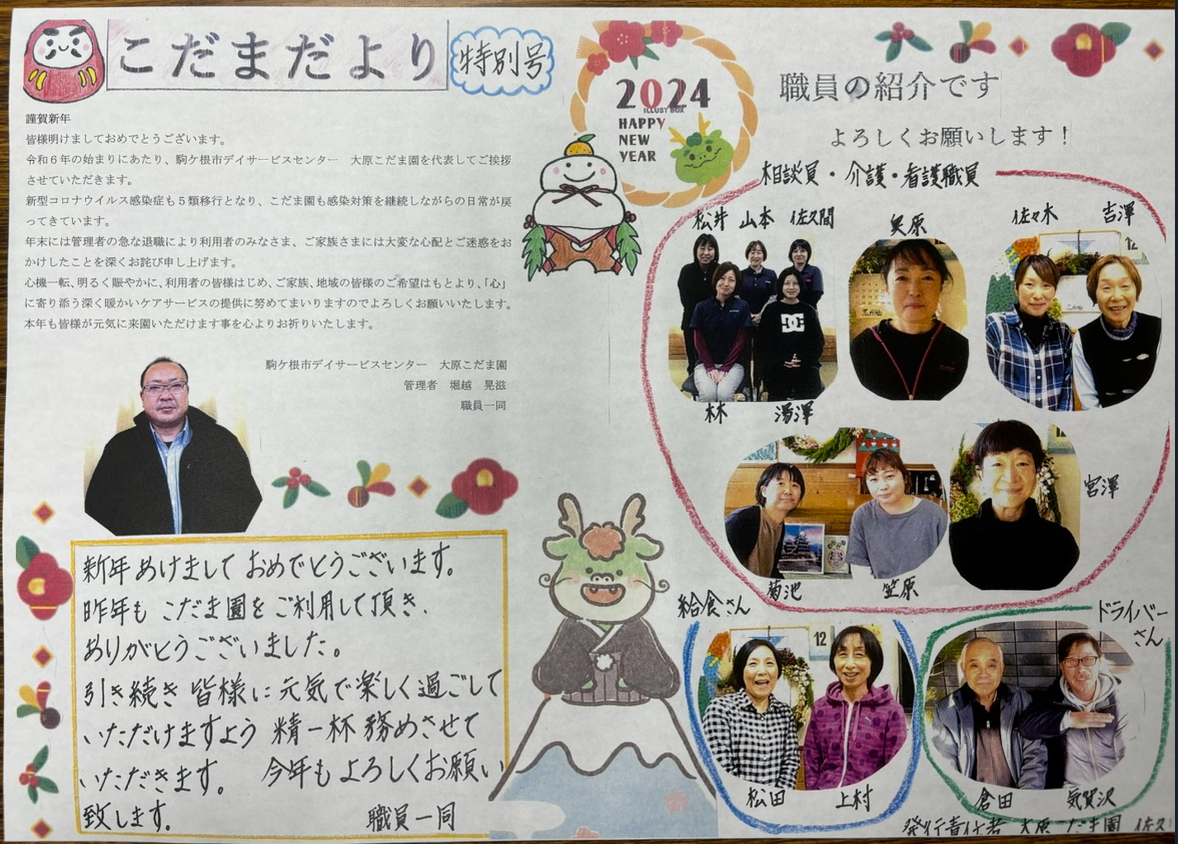 こだまだより
特別号
謹賀新年
皆様明けましておめでとうございます。
令和6年の始まりにあたり、駒ケ根市デイサービスセンター　大原こだま園を代表してご挨拶
させていただきます。
新型コロナウイルス感染症も5類移行となり、こだま園も感染対策を継続しながらの日常が戻
ってきています。
年末には管理者の急な退職により利用者のみなさま、ご家族さまには大変な心配とご迷惑をお
かけしたことを深くお詫び申し上げます。
心機一転、明るく賑やかに、利用者の皆様はじめ、ご家族、地域の皆様のご希望はもとより、「心」
に寄り添う深く暖かいケアサービスの提供に努めてまいりますのでよろしくお願いいたします。
本年も皆様が元気に来園いただけます事を心よりお祈りいたします。
駒ケ根市デイサービスセンター　大原こだま園
管理者　堀越　晃滋
職員一同
新年あけまして おめでとうございます。
昨年も こだま園を ご利用して頂き、
ありがとうございました。
引き続き 皆様に 元気で楽しく過ごして
いただけますよう 精一杯 務めさせて
いただきます。 今年も よろしくお願い
致します。 職員一同
2024
ILLUST BOX
HAPPY
NEW
YEAR
職員の紹介です
よろしくお願いします！
相談員・介護・看護職員
松井 山本 佐久間
奥原
佐々木 吉澤
12
DC
林 湯澤
宮澤
菊池 笠原
給食さん
12
松田 上村
ドライバー
さん
倉田 気賀沢
発行責任者 大原こだま園 佐久